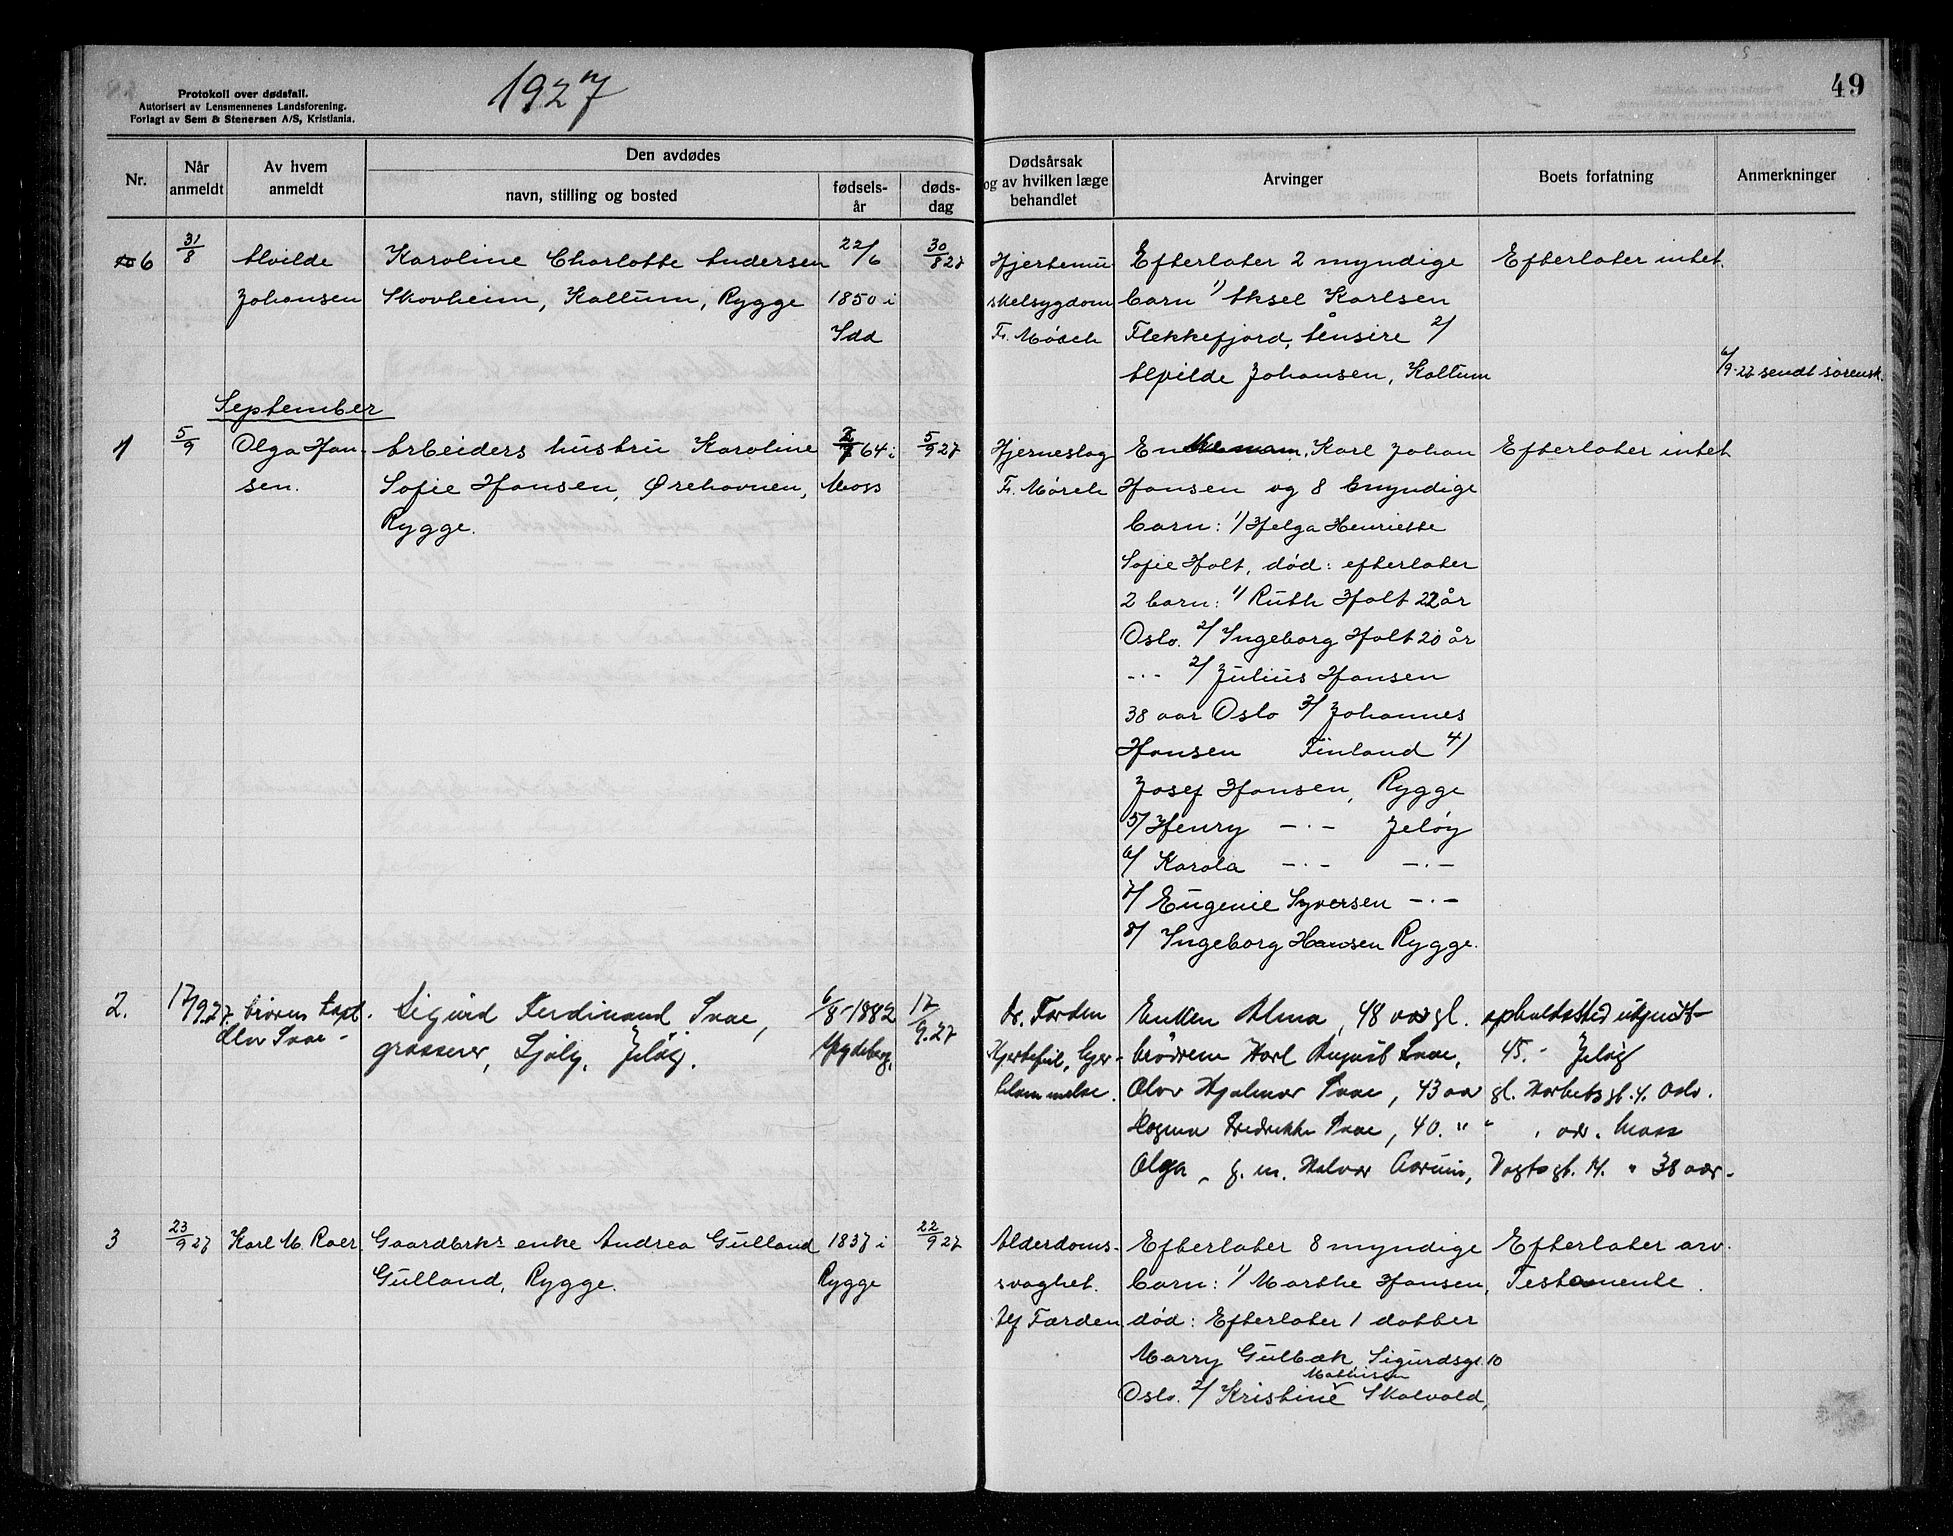 Protokoll over dødsfall.
Autorisert av Lensmennenes Landsforening.
Forlagt av Sem & Stenersen A/S, Kristiania.
1927
49
Nr.
Når anmeldt
Av hvem anmeldt
Den avdødes
navn, stilling og bosted
fødsels-år
døds-dag
Dødsårsak og av hvilken læge behandlet
Arvinger
Boets forfatning
Anmerkninger
6
31/8
Alvilde
Johansen
Karoline Charlotte Andersen
Skovheim, Kaltum, Rygge
22/6
1850 i
Idd
30/8 27
Hjertemu
skelsygdom
Fr. Mørch
Efterlater 2 myndige
barn 1/ Aksel Karlsen
Flekkefjord, Ånsire 2/
Alvilde Johansen, Kaltum
Efterlater intet.
6/9-27 sendt sørensk.
September
1
5/9
Olga Han-
sen.
Arbeiders hustru Karoline
Sofie Hansen, Ørehavnen,
Rygge.
64 i
Moss
5/9 27
Hjerneslag
Fr. Mørch
Enkemann, Karl Johan
Hansen og 8 myndige
barn: 1/ Helga Henriette
Sofie Holt, død: efterlater
2 barn: 1/ Ruth Holt 22 år
Oslo. 2/ Ingeborg Holt 20 år
-"- 2/ Julius Hansen
38 aar Oslo 3/ Johannes
Hansen Finland 4/
Josef Hansen, Rygge
5/ Henry -"- Jeløy
6/ Karola -"- -"-
7/ Eugenie Syversen -"-
8/ Ingeborg Hansen Rygge.
Efterlater intet
2.
17/9.27.
broren kapt.
Olav Svae -
Sigurd Ferdinand Svae,
grosserer, Sjøly, Jeløy.
6/8-1882
Spydeberg.
17/9.27
Dr. Færden
Hjertefeil,
Enken Alma, 48 aar gl.
brødrene Karl August Svae,
Olav Hjalmar Svae, 43 aar
Fredrikke Svae, 40. "
Olga, g. m. Halvor
opholdssted ukjendt
45.- Jeløy
gl. Oslo.
" Moss
Vogts gt. 14. " 38 aar.
3
23/9 27
Karl M. Roer
Gaardbrks enke Andrea Gulland
Gulland, Rygge.
1837 i
Rygge
22/9 27
Alderdoms-
svaghet.
Alf Færden
Efterlater 8 myndige
barn: 1/ Marthe Hansen,
død: Efterlater 1 datter
Marry Gulbæk, Sigurdsgt. 10
Mathisen
Oslo. 2/ Kristine Skalvold,
Efterlater arv.
Testamente.